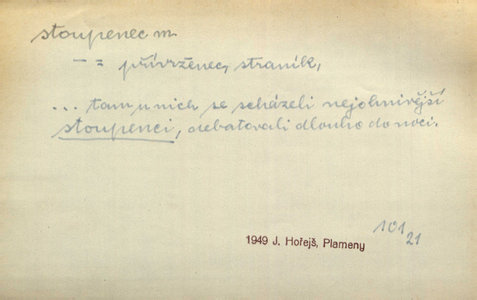 stoupenec m.
— = přívrženec, straník,
... tam u nich se scházeli nejohnivější
stoupenci, debatovali dlouho do noci.
1949 J. Hořejš, Plameny
101
21